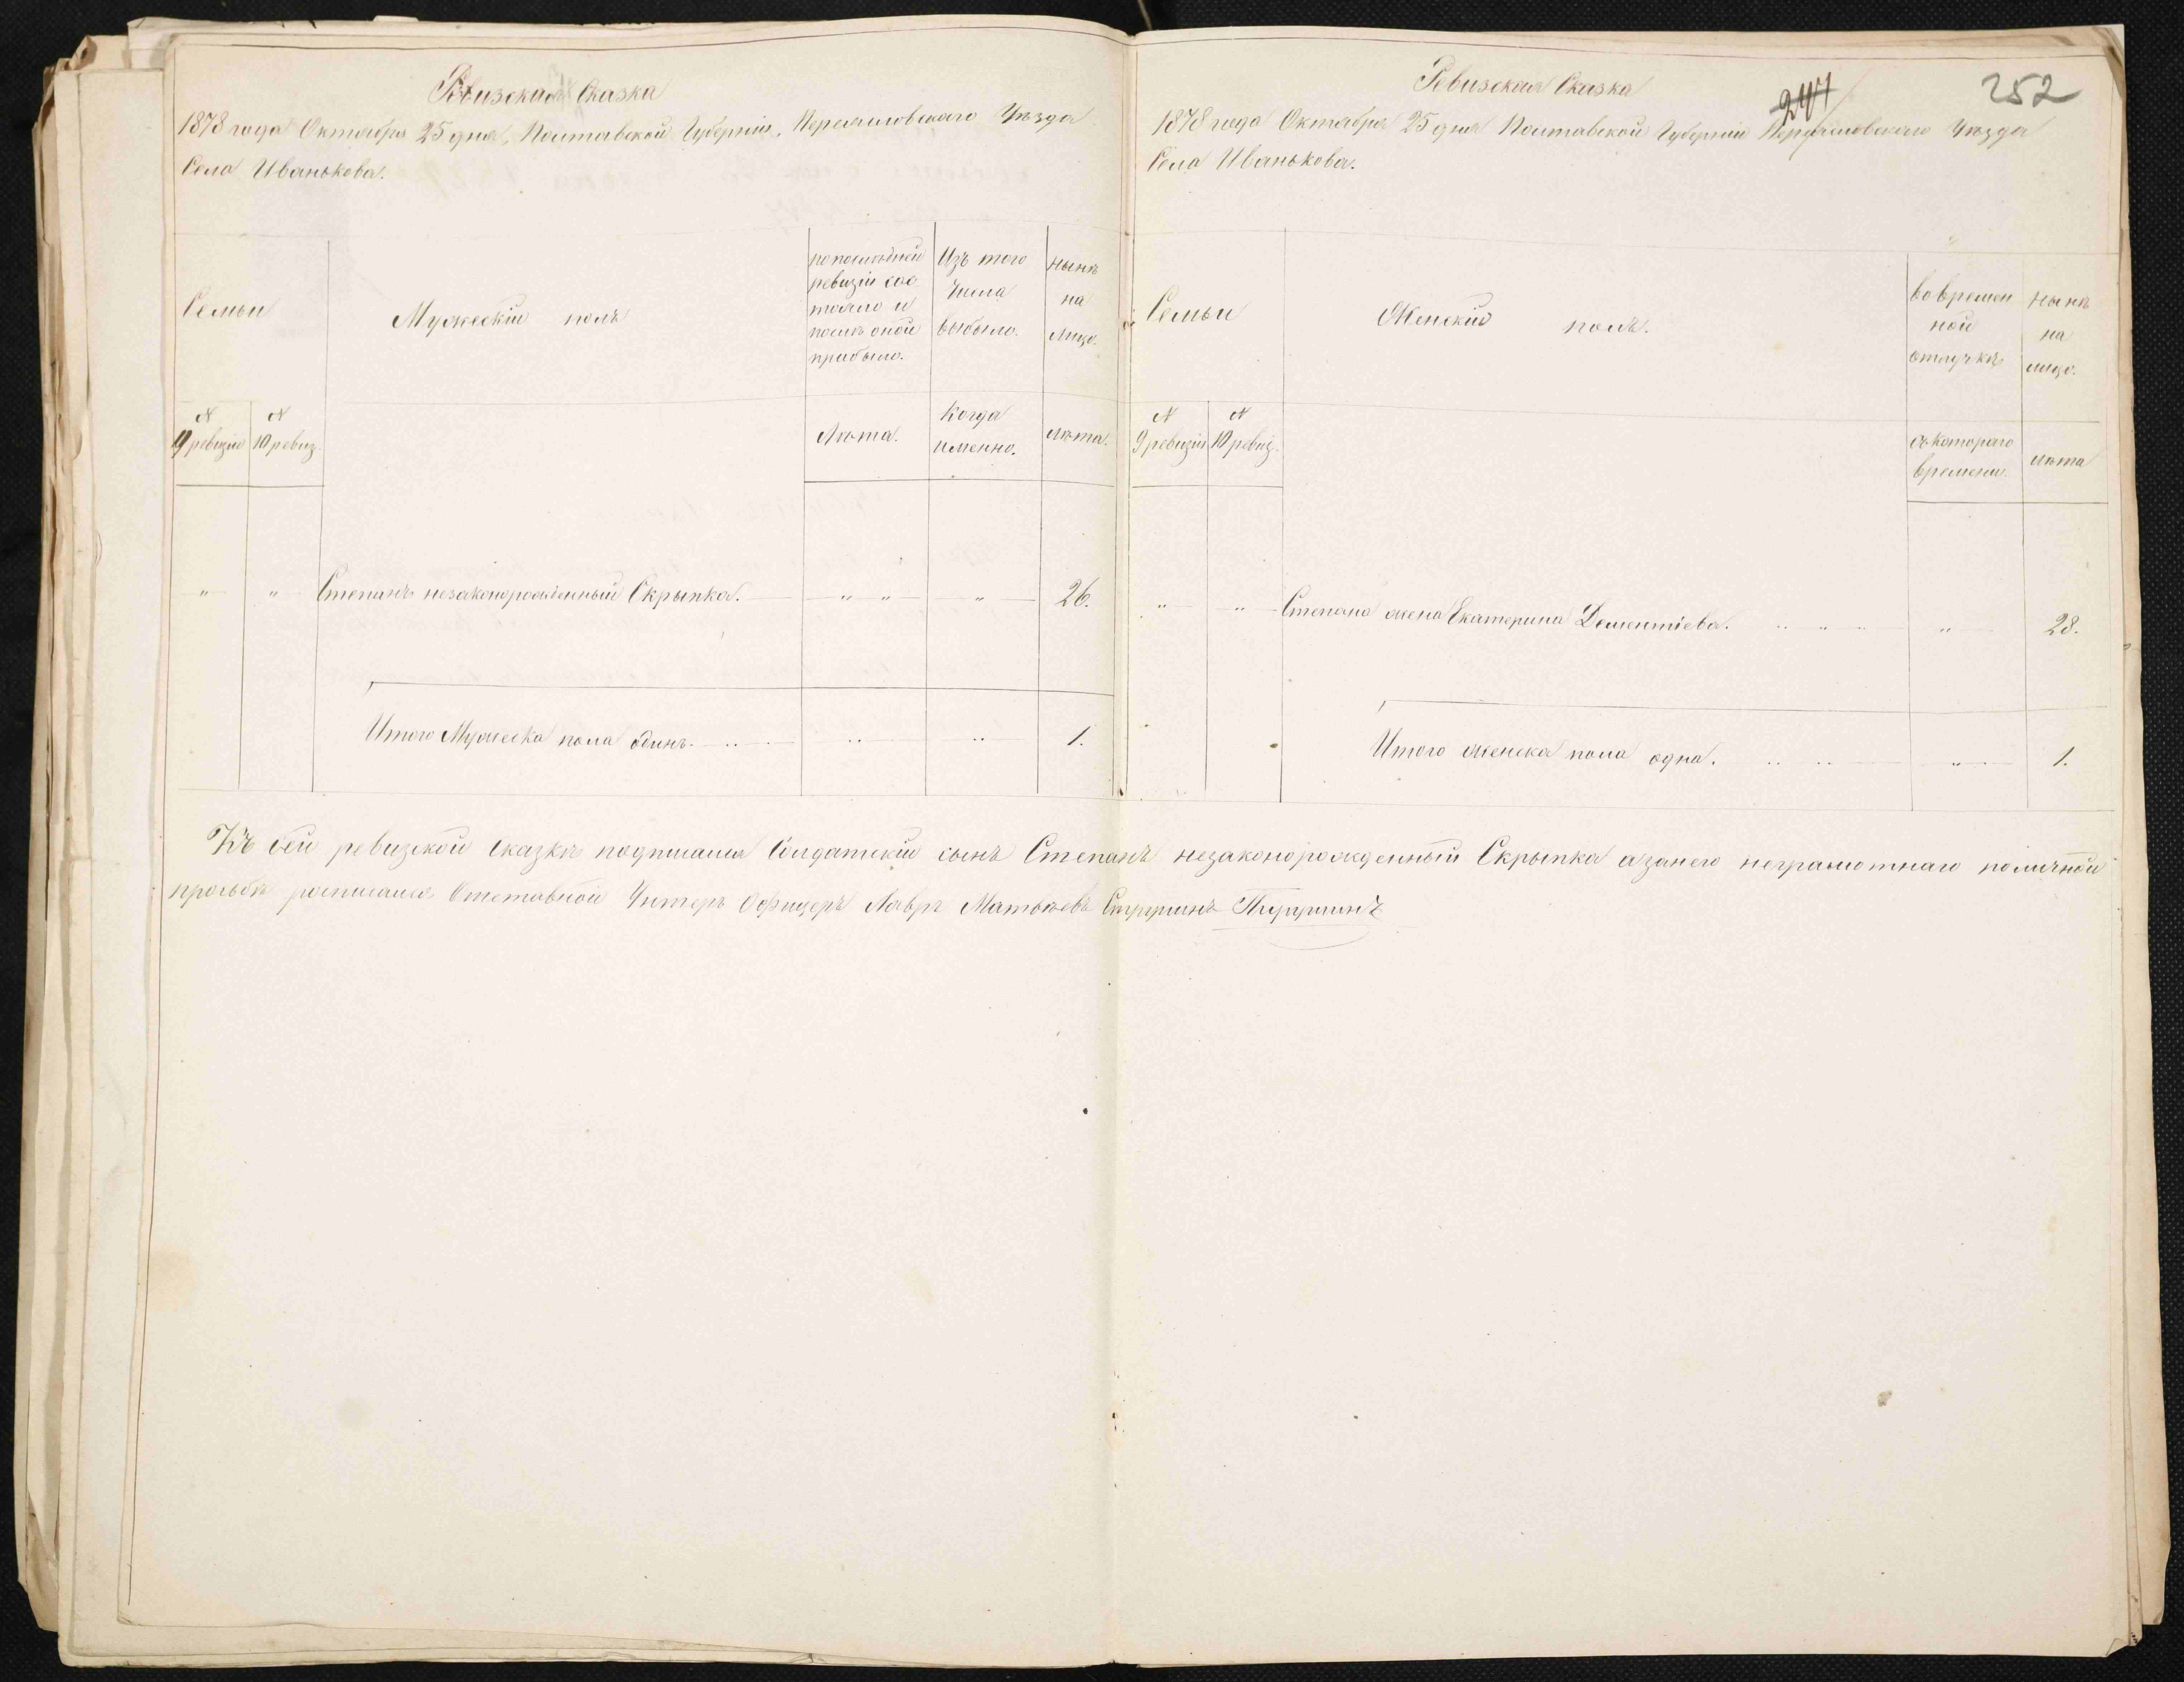 Ревизская Сказка
1878 года Октября 25 дня, Полтавской Губерніи, Переяславскаго Уѣзда
Села Иванькова.
Семьи
Мужескій полъ
по послѣдней
ревизіи сос
тояло и
послѣ оной
прибыло.
Изъ того
числа
выбыло.
нынѣ
на
лицо.
№
9 ревизіи
№
10 ревиз.
Лѣта.
Когда
именно.
лѣта.
" " Степанъ незаконорожденный Скрыпка. " " " 26.
Итого Мужеска пола одинъ. " " 1.
247
252
Ревизская Сказка
1878 года Октября 25 дня Полтавской Губерніи Переяславскаго Уѣзда
Села Иванькова.
Семьи
Женскій полъ.
Во времен
ной
отлучкѣ
нынѣ
на
лицо.
№
9 ревизіи
№
10 ревиз.
съ котораго
времени.
лѣта
" " Степана жена Екатерина Дементіева. " " " " 28.
Итого женска пола одна. " " " 1.
Къ сей ревизской сказкѣ подписался Солдатскій сынъ Степанъ незаконорожденный Скрыпка а занего неграмотнаго поличной
прозьбѣ росписался Отставной Унтеръ Офицеръ Лавръ Матвѣевъ